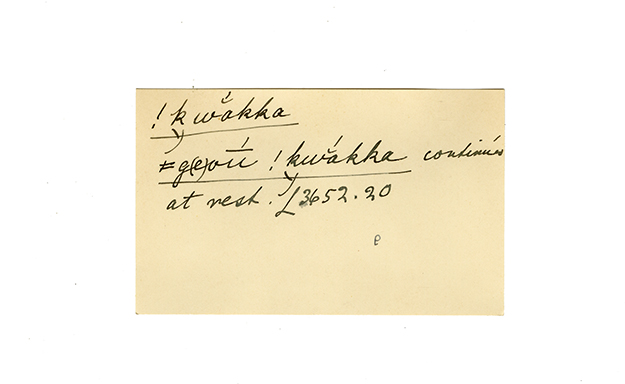 !kwắkka
≠g(e)oú !kwắkka continues
at rest. L3652.20
e